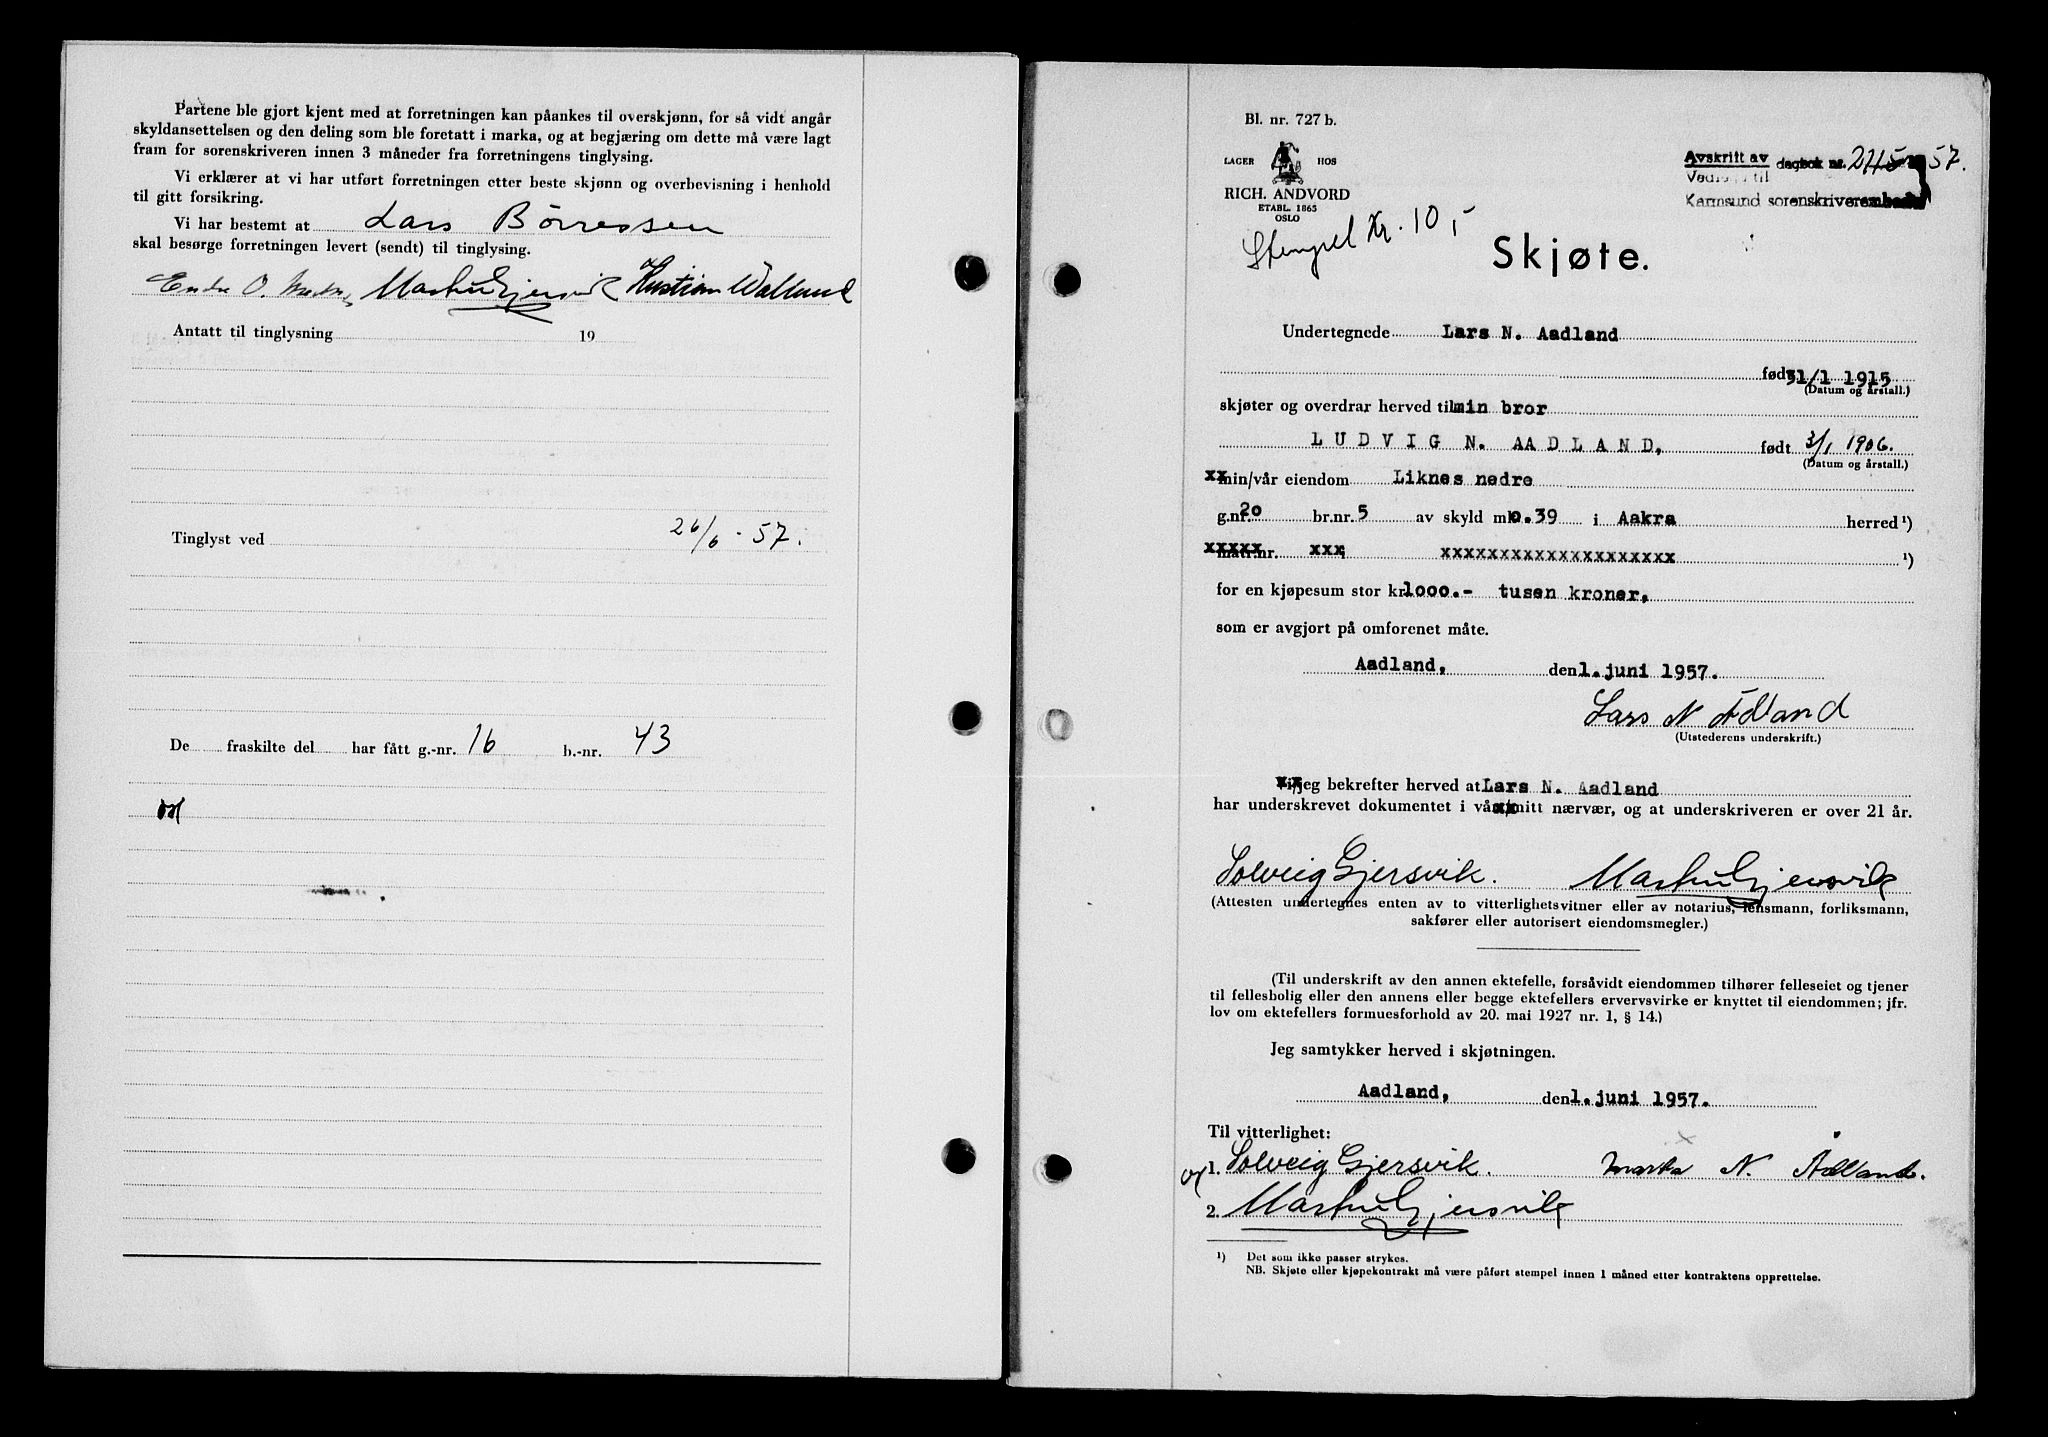 Partene ble gjort kjent med at forretningen kan påankes til overskjønn, for så vidt angår
skyldansettelsen og den deling som ble foretatt i marka, og at begjæring om dette må være lagt
fram for sorenskriveren innen 3 måneder fra forretningens tinglysing.
Vi erklærer at vi har utført forretningen etter beste skjønn og overbevisning i henhold
til gitt forsikring.
Vi har bestemt at Lars Børressen
skal besørge forretningen levert (sendt) til tinglysing.
Endre O. Martin Gjersvik Kristian Walland
Antatt til tinglysning 19
Tinglyst ved 26/6 - 57.
De fraskilte del har fått g.-nr. 16 b.-nr. 43
Bl. nr. 727 b.
LAGER HOS
RICH. ANDVORD
ETABL. 1865
OSLO
Avskrift av dagbok nr. 2115 57.
Vedlegg til
Karmsund sorenskriverembede
Stempel kr. 10,-
Skjøte.
Undertegnede Lars N. Aadland
født 31/1 1915
(Datum og årstall.)
skjøter og overdrar herved til min bror
LUDVIG N. AADLAND, født 3/1 1906.
(Datum og årstall.)
xxmin/vår eiendom Liknes nedre
g.nr. 20 br.nr. 5 av skyld mk. 0.39 i Aakra herred ¹)
xxxxx matr.nr. xxx i xxxxxxxxxxxxxxxxxxxx ¹)
for en kjøpesum stor kr. 1000.- tusen kroner,
som er avgjort på omforenet måte.
Aadland, den 1. juni 1957.
Lars N Ådland
(Utstederens underskrift.)
Vi/jeg bekrefter herved at Lars N. Aadland
har underskrevet dokumentet i vårt/mitt nærvær, og at underskriveren er over 21 år.
Solveig Gjersvik. Martin Gjersvik
(Attesten undertegnes enten av to vitterlighetsvitner eller av notarius, lensmann, forliksmann,
sakfører eller autorisert eiendomsmegler.)
(Til underskrift av den annen ektefelle, forsåvidt eiendommen tilhører felleseiet og tjener
til fellesbolig eller den annens eller begge ektefellers ervervsvirke er knyttet til eiendommen; jfr.
lov om ektefellers formuesforhold av 20. mai 1927 nr. 1, § 14.)
Jeg samtykker herved i skjøtningen.
Aadland, den 1. juni 1957.
Til vitterlighet:
1. Solveig Gjersvik. Marta N. Ådland.
2. Martin Gjersvik
¹) Det som ikke passer strykes.
NB. Skjøte eller kjøpekontrakt må være påført stempel innen 1 måned etter kontraktens opprettelse.